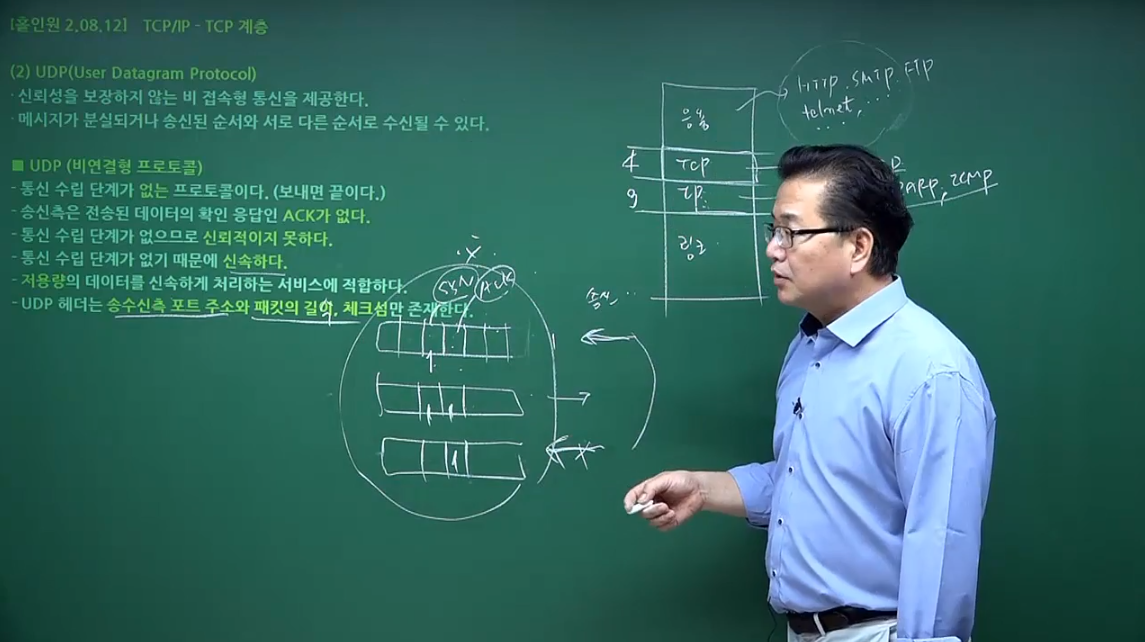 [홀인원 2.08.12] TCP/IP - TCP 계층
(2) UDP(User Datagram Protocol)
· 신뢰성을 보장하지 않는 비 접속형 통신을 제공한다.
· 메시지가 분실되거나 송신된 순서와 서로 다른 순서로 수신될 수 있다.
■ UDP (비연결형 프로토콜)
- 통신 수립 단계가 없는 프로토콜이다. (보내면 끝이다.)
- 송신측은 전송된 데이터의 확인 응답인 ACK가 없다.
- 통신 수립 단계가 없으므로 신뢰적이지 못하다.
- 통신 수립 단계가 없기 때문에 신속하다.
- 저용량의 데이터를 신속하게 처리하는 서비스에 적합하다.
- UDP 헤더는 송수신측 포트 주소와 패킷의 길이, 체크섬만 존재한다.
HTTP. SMTP. FTP
telnet, ....
응용
4 TCP
IP
RARP, ICMP
링크
SYN ACK
1
1 1
1